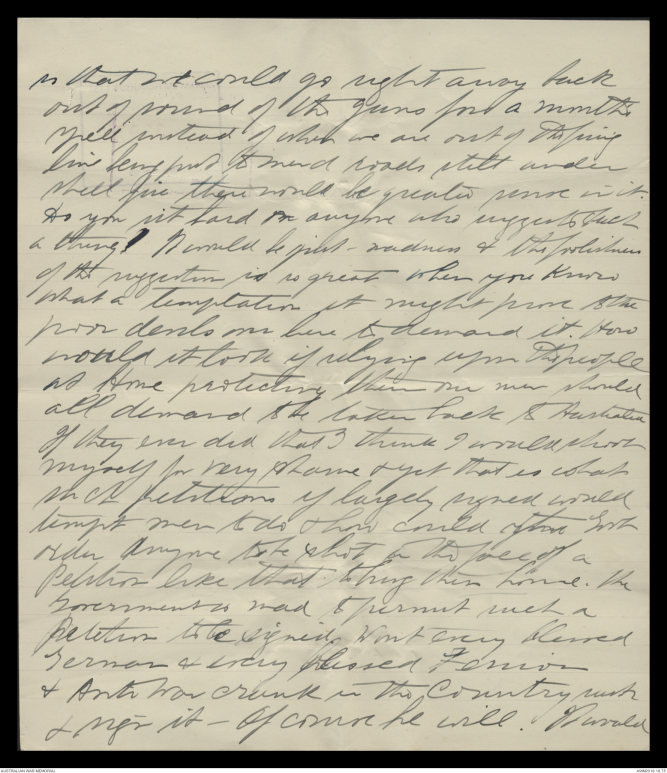 so that we could go right away back
out of sound of the guns for a months
spell instead of when we are out of the firing
line being put to mend roads still under
shell fire there would be greater sense in it.
Do you sit hard on anyone who suggests such
a thing! It would be just madness & the foolishness
of the suggestion is so great when you know
what a temptation it might prove to the
poor devils over here to demand it. How
would it look if relying upon the people
at Home protecting them our men should
all demand to be taken back to Australia
If they ever did that I think I would shoot
myself for very shame & yet that is what
such petitions if largely signed would
tempt men to do & how could  Govt
order anyone to be shot in the face of a
Petition like that to bring them home. The
Government is mad to permit such a
Petition to be signed, wont every blessed
German & every blessed Fenian
& Anti War crank in the Country rush
& sign it - Of course he will. It would
AUSTRALIAN WAR MEMORIAL